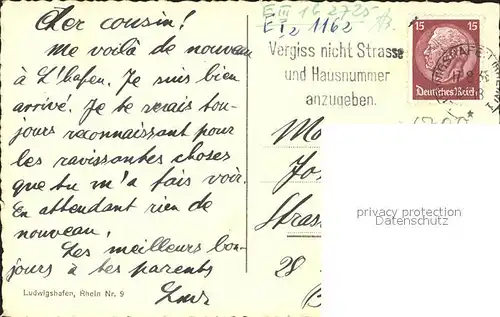 Cher cousin!
Me voilà de nouveau
à L'hafen. Je suis bien
arrivé. Je te serais tou-
jours reconnaissant pour
les ravissantes choses
que tu m'a fais voir.
En attendant rien de
nouveau,
Les meilleurs bon-
jours à tes parents
Ludwigshafen, Rhein Nr. 9
E III 16 2725
E I, 2 1162
Vergiss nicht Strasse
und Hausnummer
anzugeben.
15 15
Deutsches Reich
Stras
28
privacy protection
Datenschutz